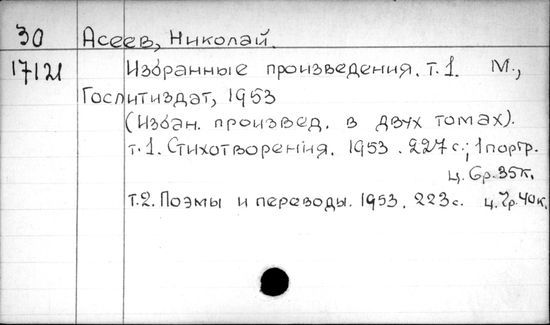 30 Асеев, Николай.
17121 Избранные произведения. т.1. М.,
Гослитиздат, 1953
(Избан. произвед. в двух томах).
т.1. Стихотворения. 1953. 227 с.; 1 портр.
ц. 6р.35к.
т.2. Поэмы и переводы. 1953. 223 с. ц. 7р.40к.